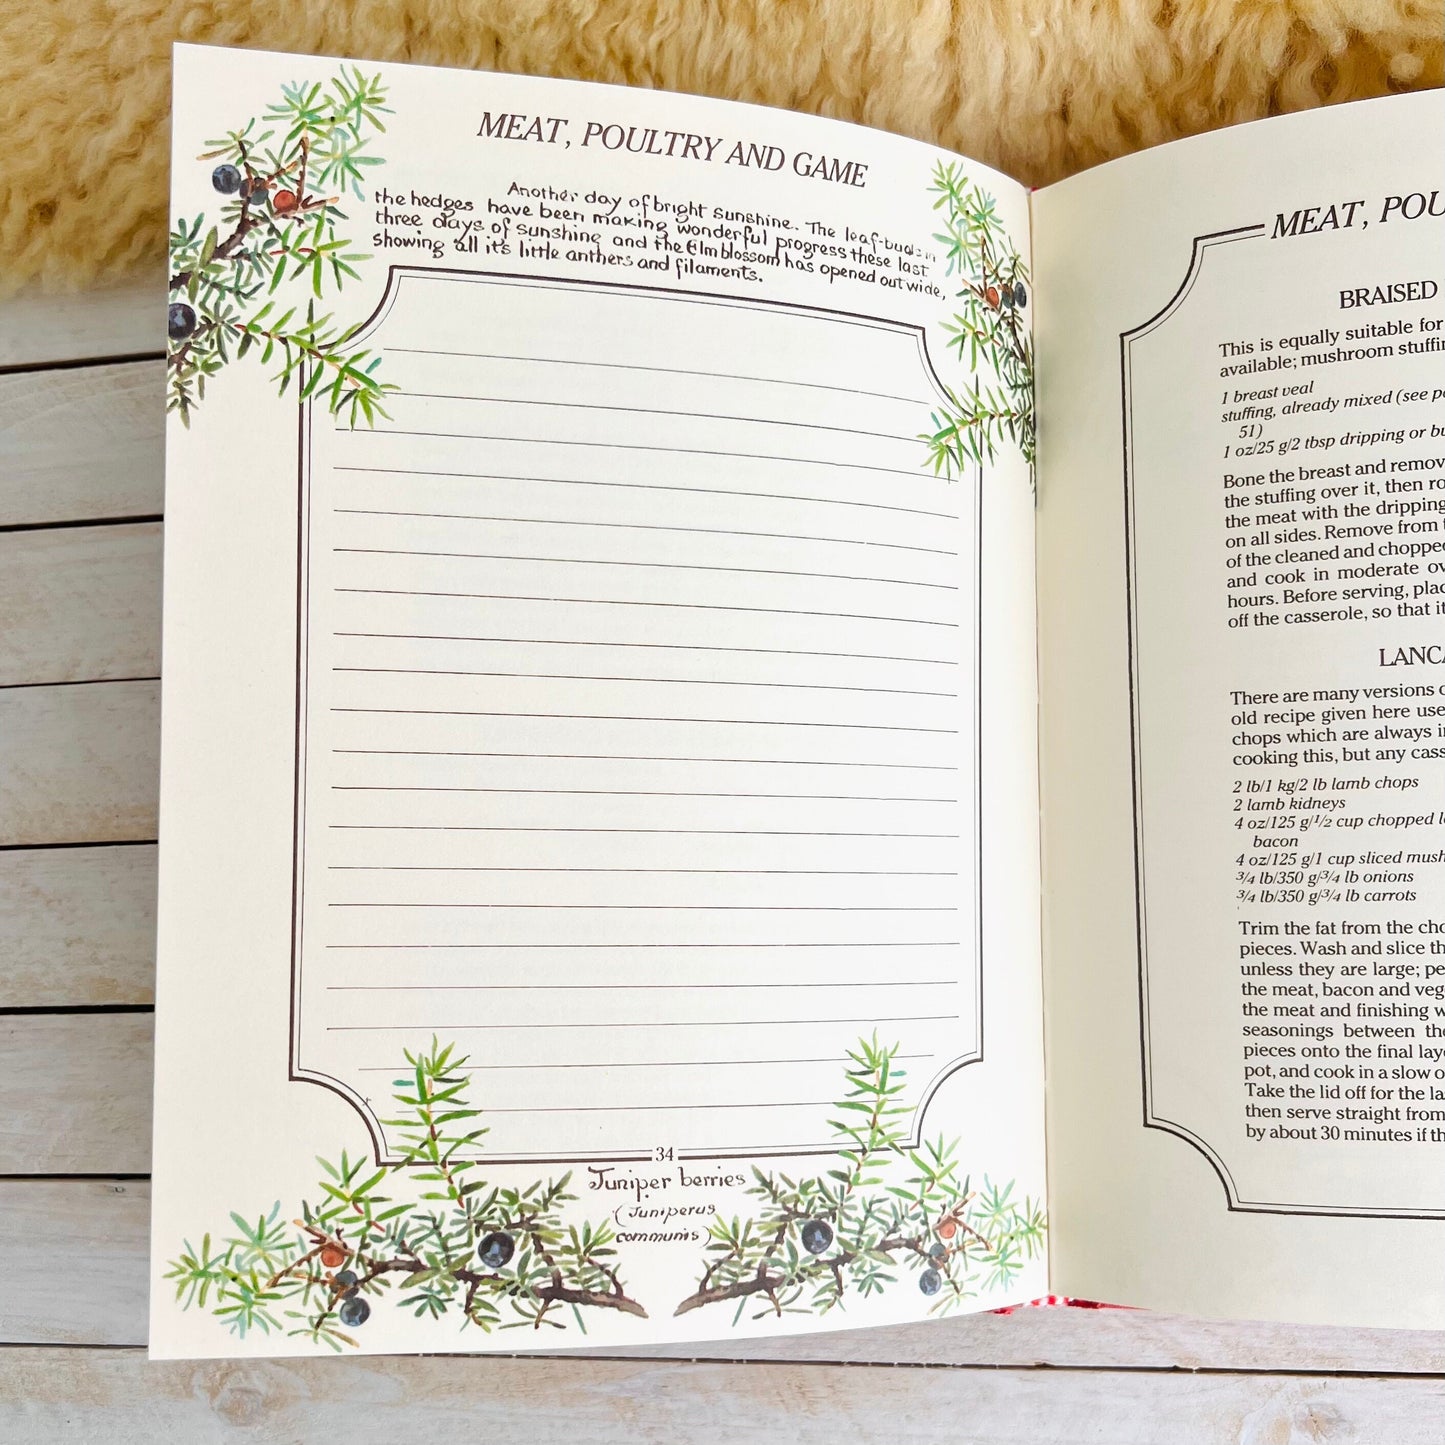 MEAT, POULTRY AND GAME
Another day of bright sunshine. The leaf-buds in
the hedges have been making wonderful progress these last
three days of sunshine and the Elm blossom has opened out wide,
showing all it's little anthers and filaments.
34
Juniper berries
(Juniperus
communis)
MEAT, POU
BRAISED
This is equally suitable for
available; mushroom stuffin
1 breast veal
stuffing, already mixed (see p
51)
1 oz/25 g/2 tbsp dripping or bu
Bone the breast and remov
the stuffing over it, then ro
the meat with the dripping
on all sides. Remove from
of the cleaned and chopped
and cook in moderate ov
hours. Before serving, plac
off the casserole, so that it
LANCA
There are many versions o
old recipe given here use
chops which are always i
cooking this, but any cass
2 lb/1 kg/2 lb lamb chops
2 lamb kidneys
4 oz/125 g/1/2 cup chopped l
bacon
4 oz/125 g/1 cup sliced mush
3/4 lb/350 g/3/4 lb onions
3/4 lb/350 g/3/4 lb carrots
Trim the fat from the cho
pieces. Wash and slice th
unless they are large; pe
the meat, bacon and veg
the meat and finishing w
seasonings between the
pieces onto the final lay
pot, and cook in a slow o
Take the lid off for the la
then serve straight from
by about 30 minutes if th